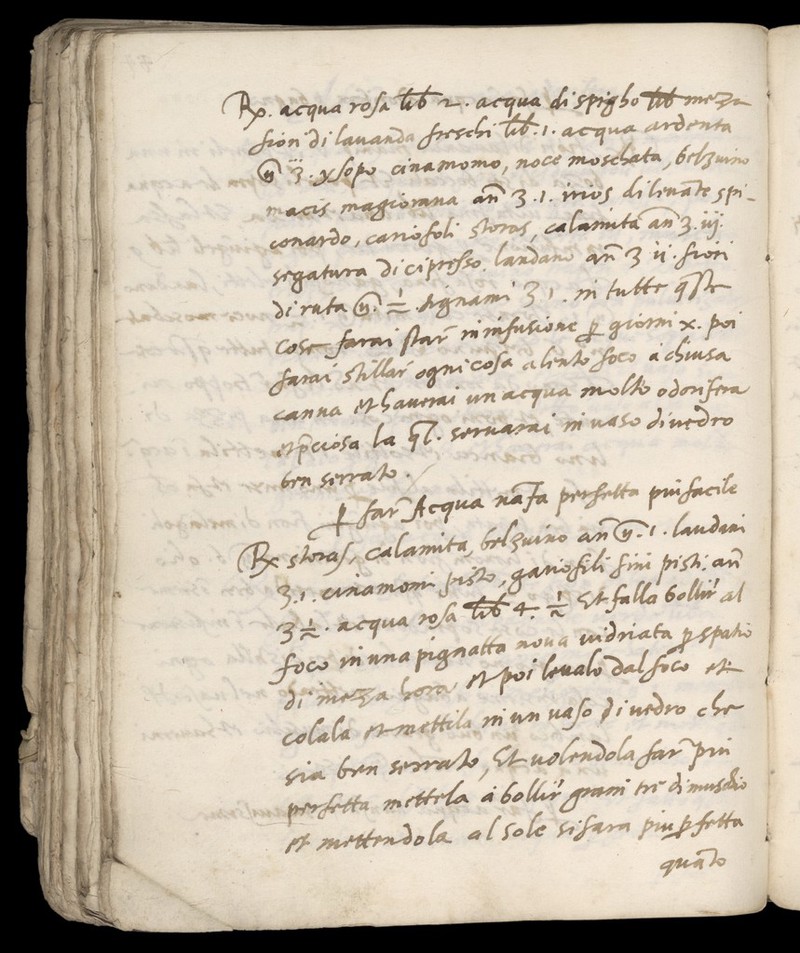 Rx. acqua rosa lib 2. acqua di spigho lib mezza
fiori di lavanda freschi lib. 1. acqua ardenta
ysopo cinamomo, noce moschata, belzuino
macis magiorana añ ʒ .1. irios di levante spi-
conardo, cariofoli storas, calamita añ ʒ. iij.
segatura di cipresso. landano añ ʒ ij. fiori
di ruta ½ . ʒ 1. in tutte q̃ste
cose farai star̃ in infusione p̱ giorni x. poi
farai stillar̃ ogni cosa a lento foco à chiusa
canna et haverai un acqua molto odorifera
et p̃ciosa la q̃l. servarai in vaso di vedro
ben serrato.
p̱ far̃ Acqua nanfa perfetta piu facile
Rx storas, calamita, belzuino añ 1. laudani
ʒ.1. cinamomi pisto, gariofili fini pisti. añ
ʒ ½. acqua rosa lib 4. ½ Et falla bollir̃ al
foco in una pignatta nova vidriata p̱ spatio
di mezza hora et poi levalo dal foco et
colala et mettila in un vaso di vedro che
sia ben serrato, Et volendola far̃ piu
perfetta mettela à bollir̃ grani tre di muschio
et mettendola al sole si fara piu p̱fetta
quãto